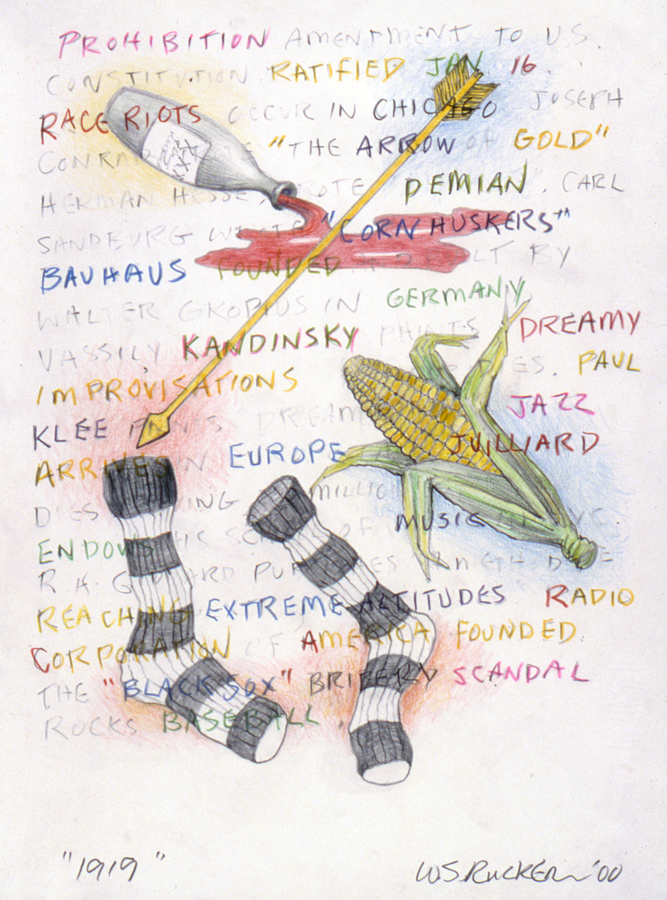 PROHIBITION AMENDMENT TO U.S.
CONSTITUTION RATIFIED JAN 16.
RACE RIOTS OCCUR IN CHICAGO JOSEPH
CONRAD "THE ARROW OF GOLD"
HERMAN HESSE WROTE DEMIAN". CARL
SANDBURG "CORN HUSKERS"
BAUHAUS FOUNDED BY
WALTER GROPIUS IN GERMANY
VASSILY KANDINSKY PAINTS DREAMY
IMPROVISATIONS PAUL
KLEE JAZZ
ARRIVES IN EUROPE JUILLIARD
DIES MILLION
ENDOWS MUSIC
R.H. GODDARD
REACHING EXTREME ALTITUDES RADIO
CORPORATION OF AMERICA FOUNDED.
THE "BLACK SOX" BRIBERY SCANDAL
ROCKS BASEBALL.
"1919" W.S. RUCKER '00